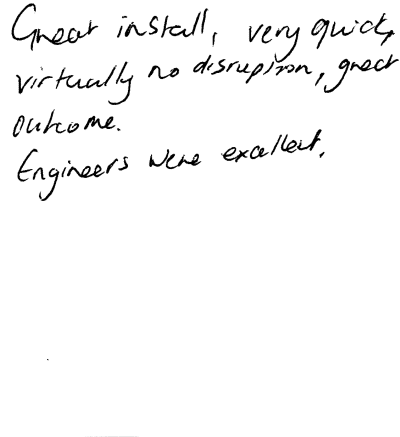 Great install, very quick,
virtually no disruption, great
outcome.
Engineers were excellent.